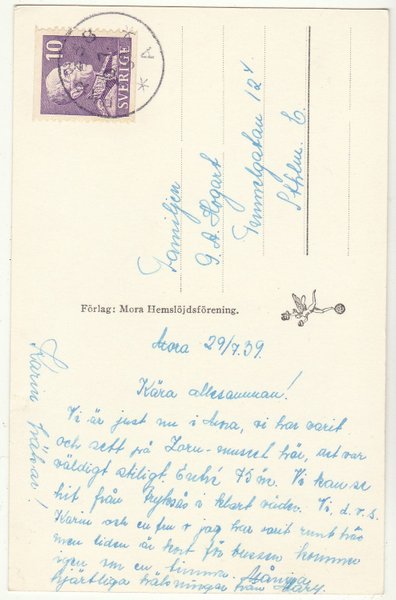 10
SVERIGE
Familjen
G. A. Hogart
Timmelgatan 12
Sthlm. C.
Förlag: Mora Hemslöjdsförening.
Mora 29/7.39.
Kära allesamman!
Vi är just nu i Mora, vi har varit
och sett på Zorn-museet här, det var
väldigt stiligt. Entré 75 öre. Vi kan se
hit från i klart väder. Vi, d.v.s.
Karin och en fru o jag har varit runt här
men tiden är kort för bussen kommer
igen om en timme. Många
hjärtliga hälsningar från Mary.
Karin hälsar!